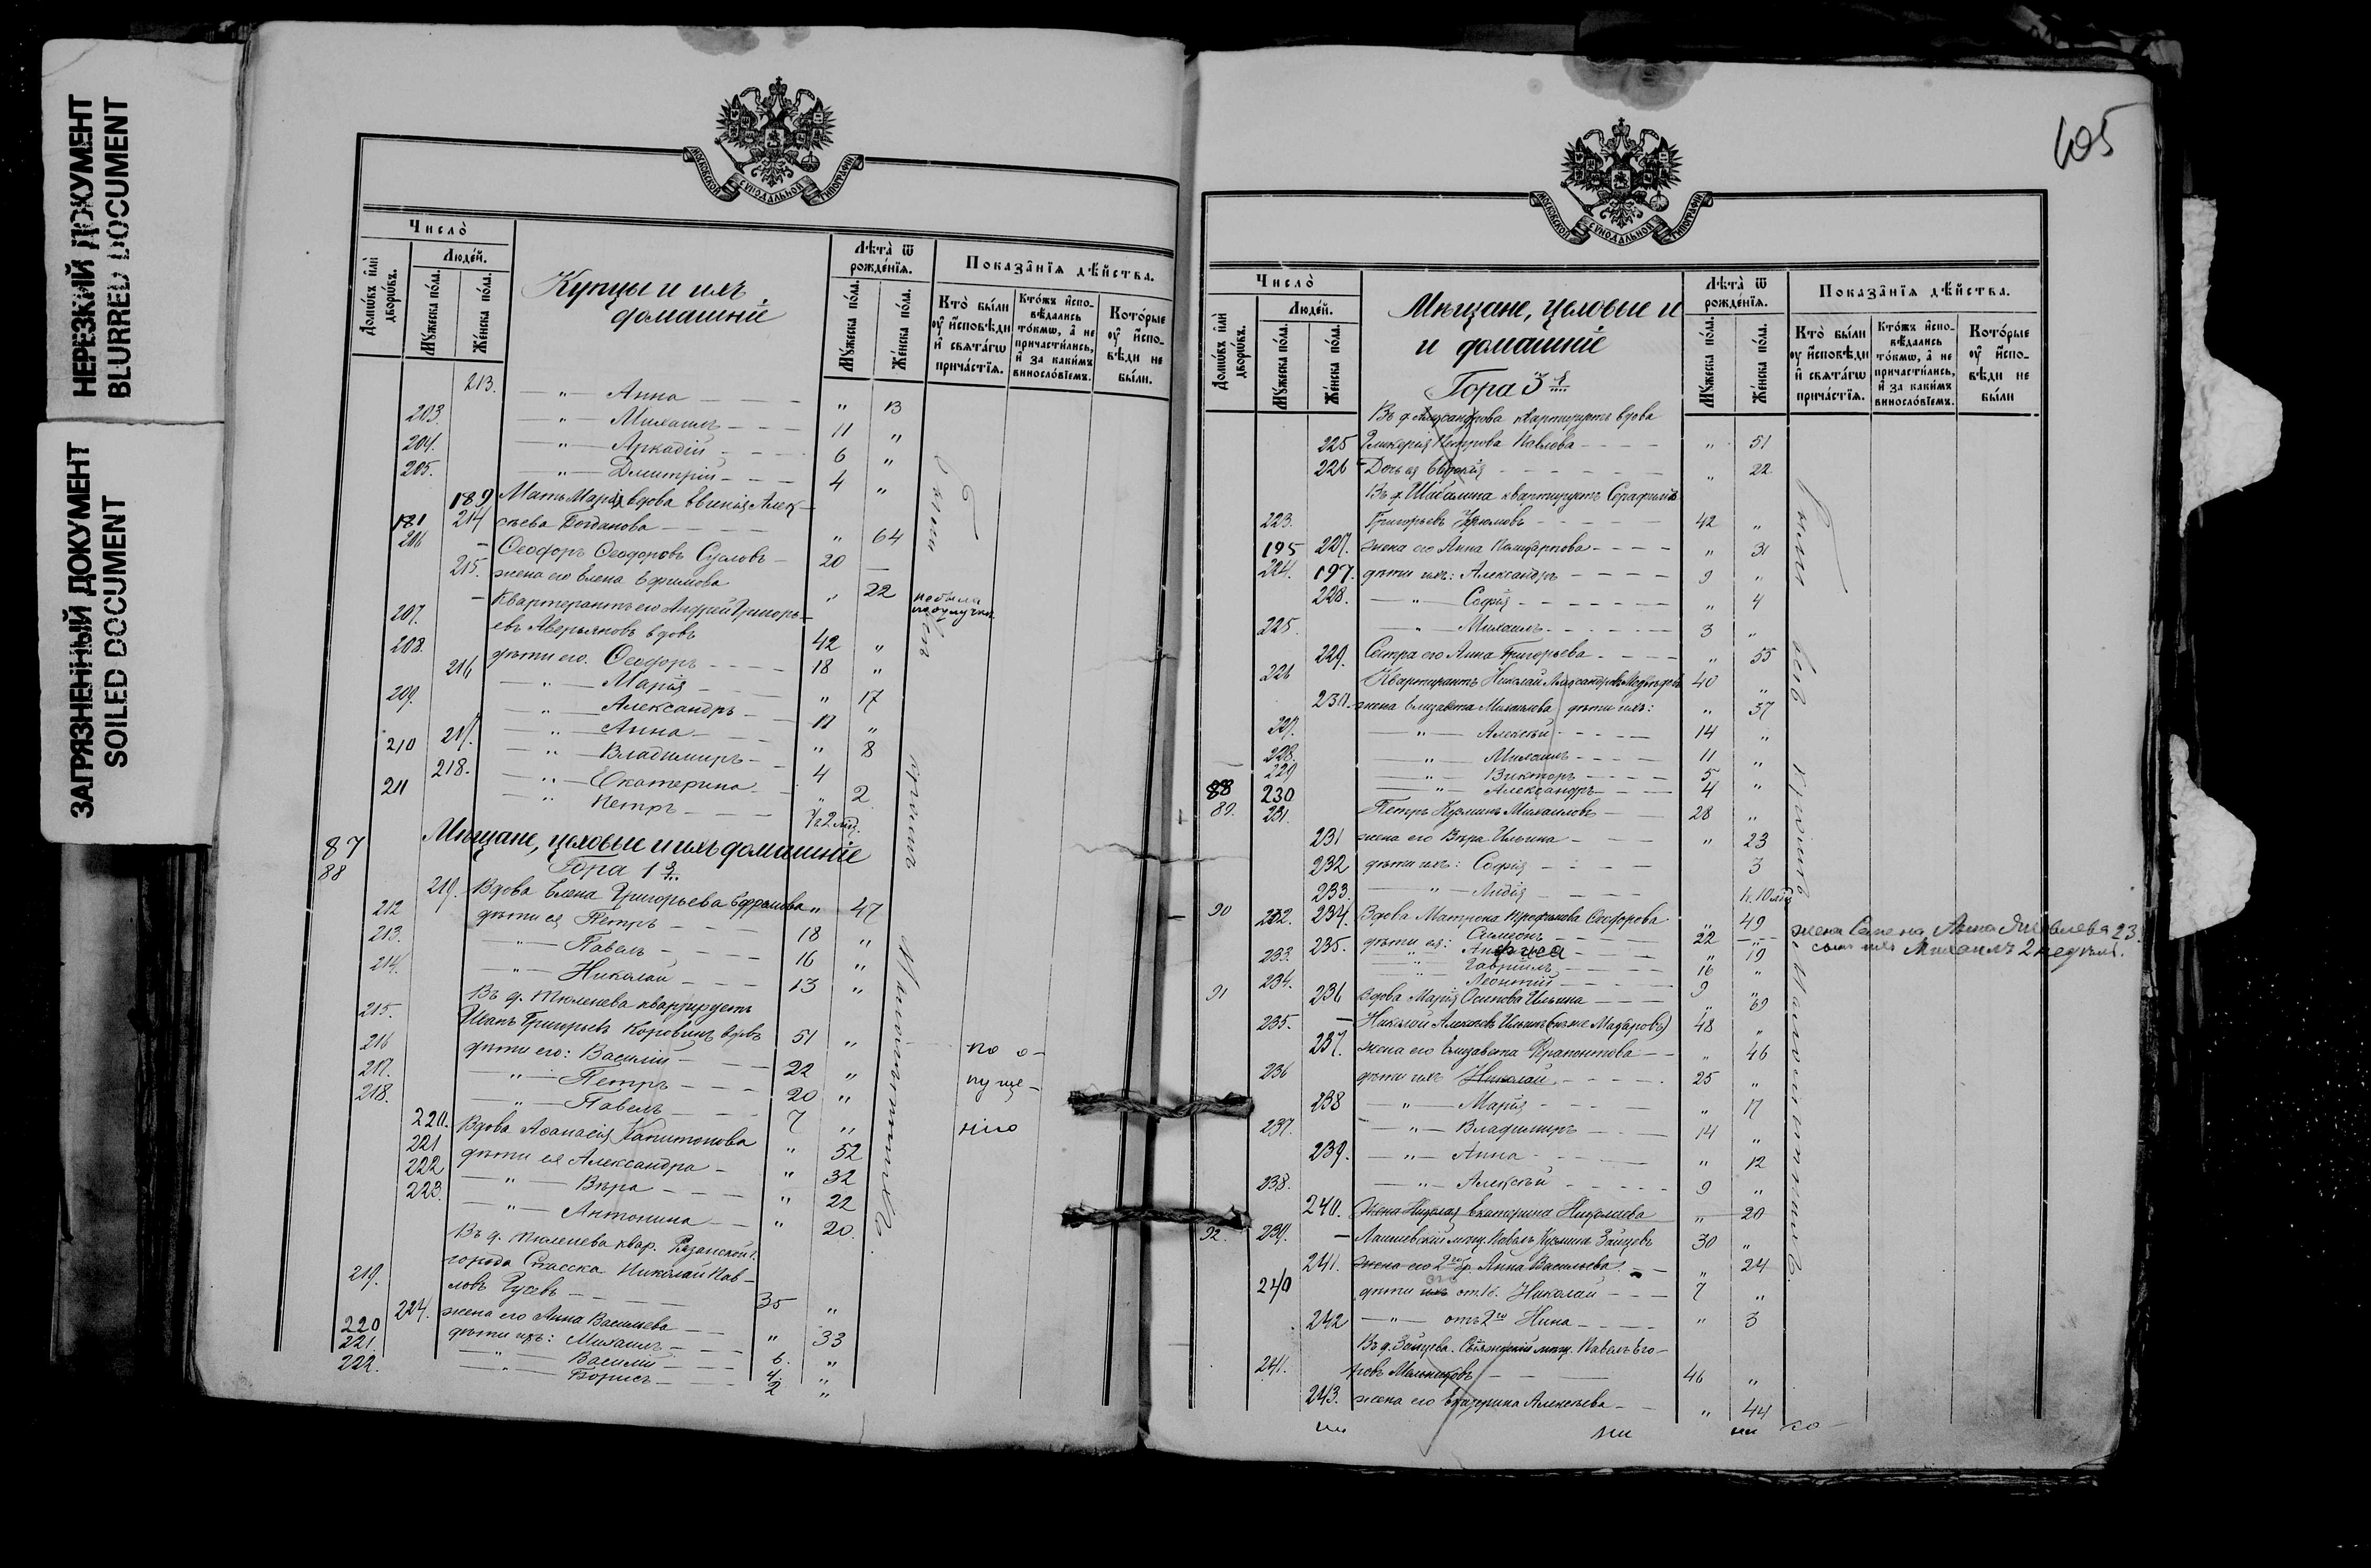 НЕРЕЗКИЙ ДОКУМЕНТ
BLURRED DOCUMENT
ЗАГРЯЗНЕННЫЙ ДОКУМЕНТ
SOILED DOCUMENT
МОСКОВСКОЙ СѴНОДАЛЬНОЙ ТИПОГРАФІИ
Число̀
Люде́й.
Домѡ́въ и҆лѝ дворѡ́въ.
Мꙋ́жеска по́ла.
Же́нска по́ла.
Купцы и ихъ
домашніе
Лѣта̀ ѿ рожде́нїѧ.
Мꙋ́жеска по́ла.
Же́нска по́ла.
Показа̑нїѧ дѣ́йства.
Кто̀ бы́ли ᲂу҆ и҆сповѣ́ди и҆ свѧта́гѡ прича́стїѧ.
Кто́жъ и҆спо­вѣ́дались то́кмѡ, а҆ не причасти́лись, и҆ за каки́мъ виносло́вїемъ.
Кото́рые ᲂу҆ и҆спо­вѣ́ди не бы́ли.
213. —"— Анна " 13
203. —"— Михаилъ 11 "
204. —"— Аркадій 6 "
205. —"— Дмитрій 4 "
189 Мать Марія, вдова Алек-
214 сѣева Богданова " 64
181 206 Ѳеодоръ Ѳеодоровъ Сусловъ 20 —
215. жена его Елена Ефимова " 22
207. Квартерантъ его Андрей Григорь-
евъ Аверьяновъ вдовъ 42 "
208. дѣти его. Ѳеодоръ 18 "
216 —"— Марія " 17
209. —"— Александръ 11 "
217. —"— Анна " 8
210 —"— Владимиръ 4
218. —"— Екатерина " 2
211 —" Петръ
87 Мѣщане, цеховые и ихъ домашніе
88 Гора 1я
219. Вдова Елена Григорьева Ефремова " 47
212 дѣти ея Петръ 18 "
213. —"— Павелъ 16 "
214. —"— Николай 13 "
Въ д. Тюленева квартируетъ
215. Иванъ Григорьевъ Коровинъ вдовъ 51 "
216 дѣти его: Василій 22 "
217. —"— Петръ 20 "
218. —"— Павелъ 7 "
220. Вдова Аѳанасія Капитонова " 52
221 дѣти ея Александра " 32
222 —"— Вѣра " 22
223. —"— Антонина " 20.
Въ д. Тюленева квар. Рязанской г.
города Спасска Николай Пав-
219. ловъ Гусевъ 35 "
224. жена его Анна Васильева " 33
220 дѣти ихъ: Михаилъ 6. "
221. —"— Василій 4. "
222. —"— Борисъ 2 "
были всѣ кромѣ
по о-
пуще-
нію
105
МОСКОВСКОЙ СѴНОДАЛЬНОЙ ТИПОГРАФІИ
Число̀
Люде́й.
Домѡ́въ и҆лѝ дворѡ́въ.
Мꙋ́жеска по́ла.
Же́нска по́ла.
Мѣщане, цеховые и
и домашніе
Гора 3я
Лѣта̀ ѿ рожде́нїѧ.
Мꙋ́жеска по́ла.
Же́нска по́ла.
Показа̑нїѧ дѣ́йства.
Кто̀ бы́ли ᲂу҆ и҆сповѣ́ди и҆ свѧта́гѡ прича́стїѧ.
Кто́жъ и҆спо­вѣ́дались то́кмѡ, а҆ не причасти́лись, и҆ за каки́мъ виносло́вїемъ.
Кото́рые ᲂу҆ и҆спо­вѣ́ди не бы́ли
Въ д. Александрова квартируетъ вдова
225 Гликерія Петрова Павлова " 51
226 Дочь ея " 22
Въ д. Шабалина квартируетъ Серафимъ
223. Григорьевъ 42 "
195 227. жена его Анна " 31
224. 197. дѣти ихъ: Александръ 9 "
228. —"— Софія " 4
225. —"— Михаилъ 3 "
229. Сестра его Анна Григорьева " 55
226 Квартирантъ Николай Александровъ Медвѣдевъ 40 "
230. жена Елизавета Михайлова дѣти ихъ: " 37
227. —"— Алексѣй 14 "
228. —"— Михаилъ 11 "
229 —"— Викторъ 5 "
88 230 —"— Александръ 4
89. 231. Петръ Кузминъ Михайловъ 28 "
231 жена его Вѣра Ильина " 23
232 дѣти ихъ: Софія 3
233. —"— Лидія
90 232. 234. Вдова Матрона Трофимова Ѳеодорова " 49
дѣти ея: Симеонъ 22 "
235. Анфиса " 19
233. Гавріилъ 16 "
234. Леонтій 9 "
жена Семена Анна Яковлева 23.
сынъ ихъ Михаилъ 2 недѣли.
91 236 вдова Марія Осипова Ильина " 69
235. Николай Алексѣевъ Ильинъ 48 "
237. жена его Елизавета " 46
236 дѣти ихъ Николай 25 "
238 —"— Марія " 17
237. —"— Владимиръ 14 "
239. —"— Анна " 12
238. —"— Алексѣй 9 "
240. Жена Николая Екатерина Николаева " 20
92. 239. Лаишевскій мѣщ. Павелъ Кузминъ Зайцевъ 30 "
241. жена его 2го бр. Анна Васильева " 24
240 дѣти ихъ его от 1 б. Николай 7 "
242 —"— отъ 2го Нина " 3
Въ д. Зайцева. Свіяжскій мѣщ. Павелъ Его-
241. ровъ Мальниковъ 46 "
243. жена его Екатерина Алексѣева " 44
Были всѣ кромѣ